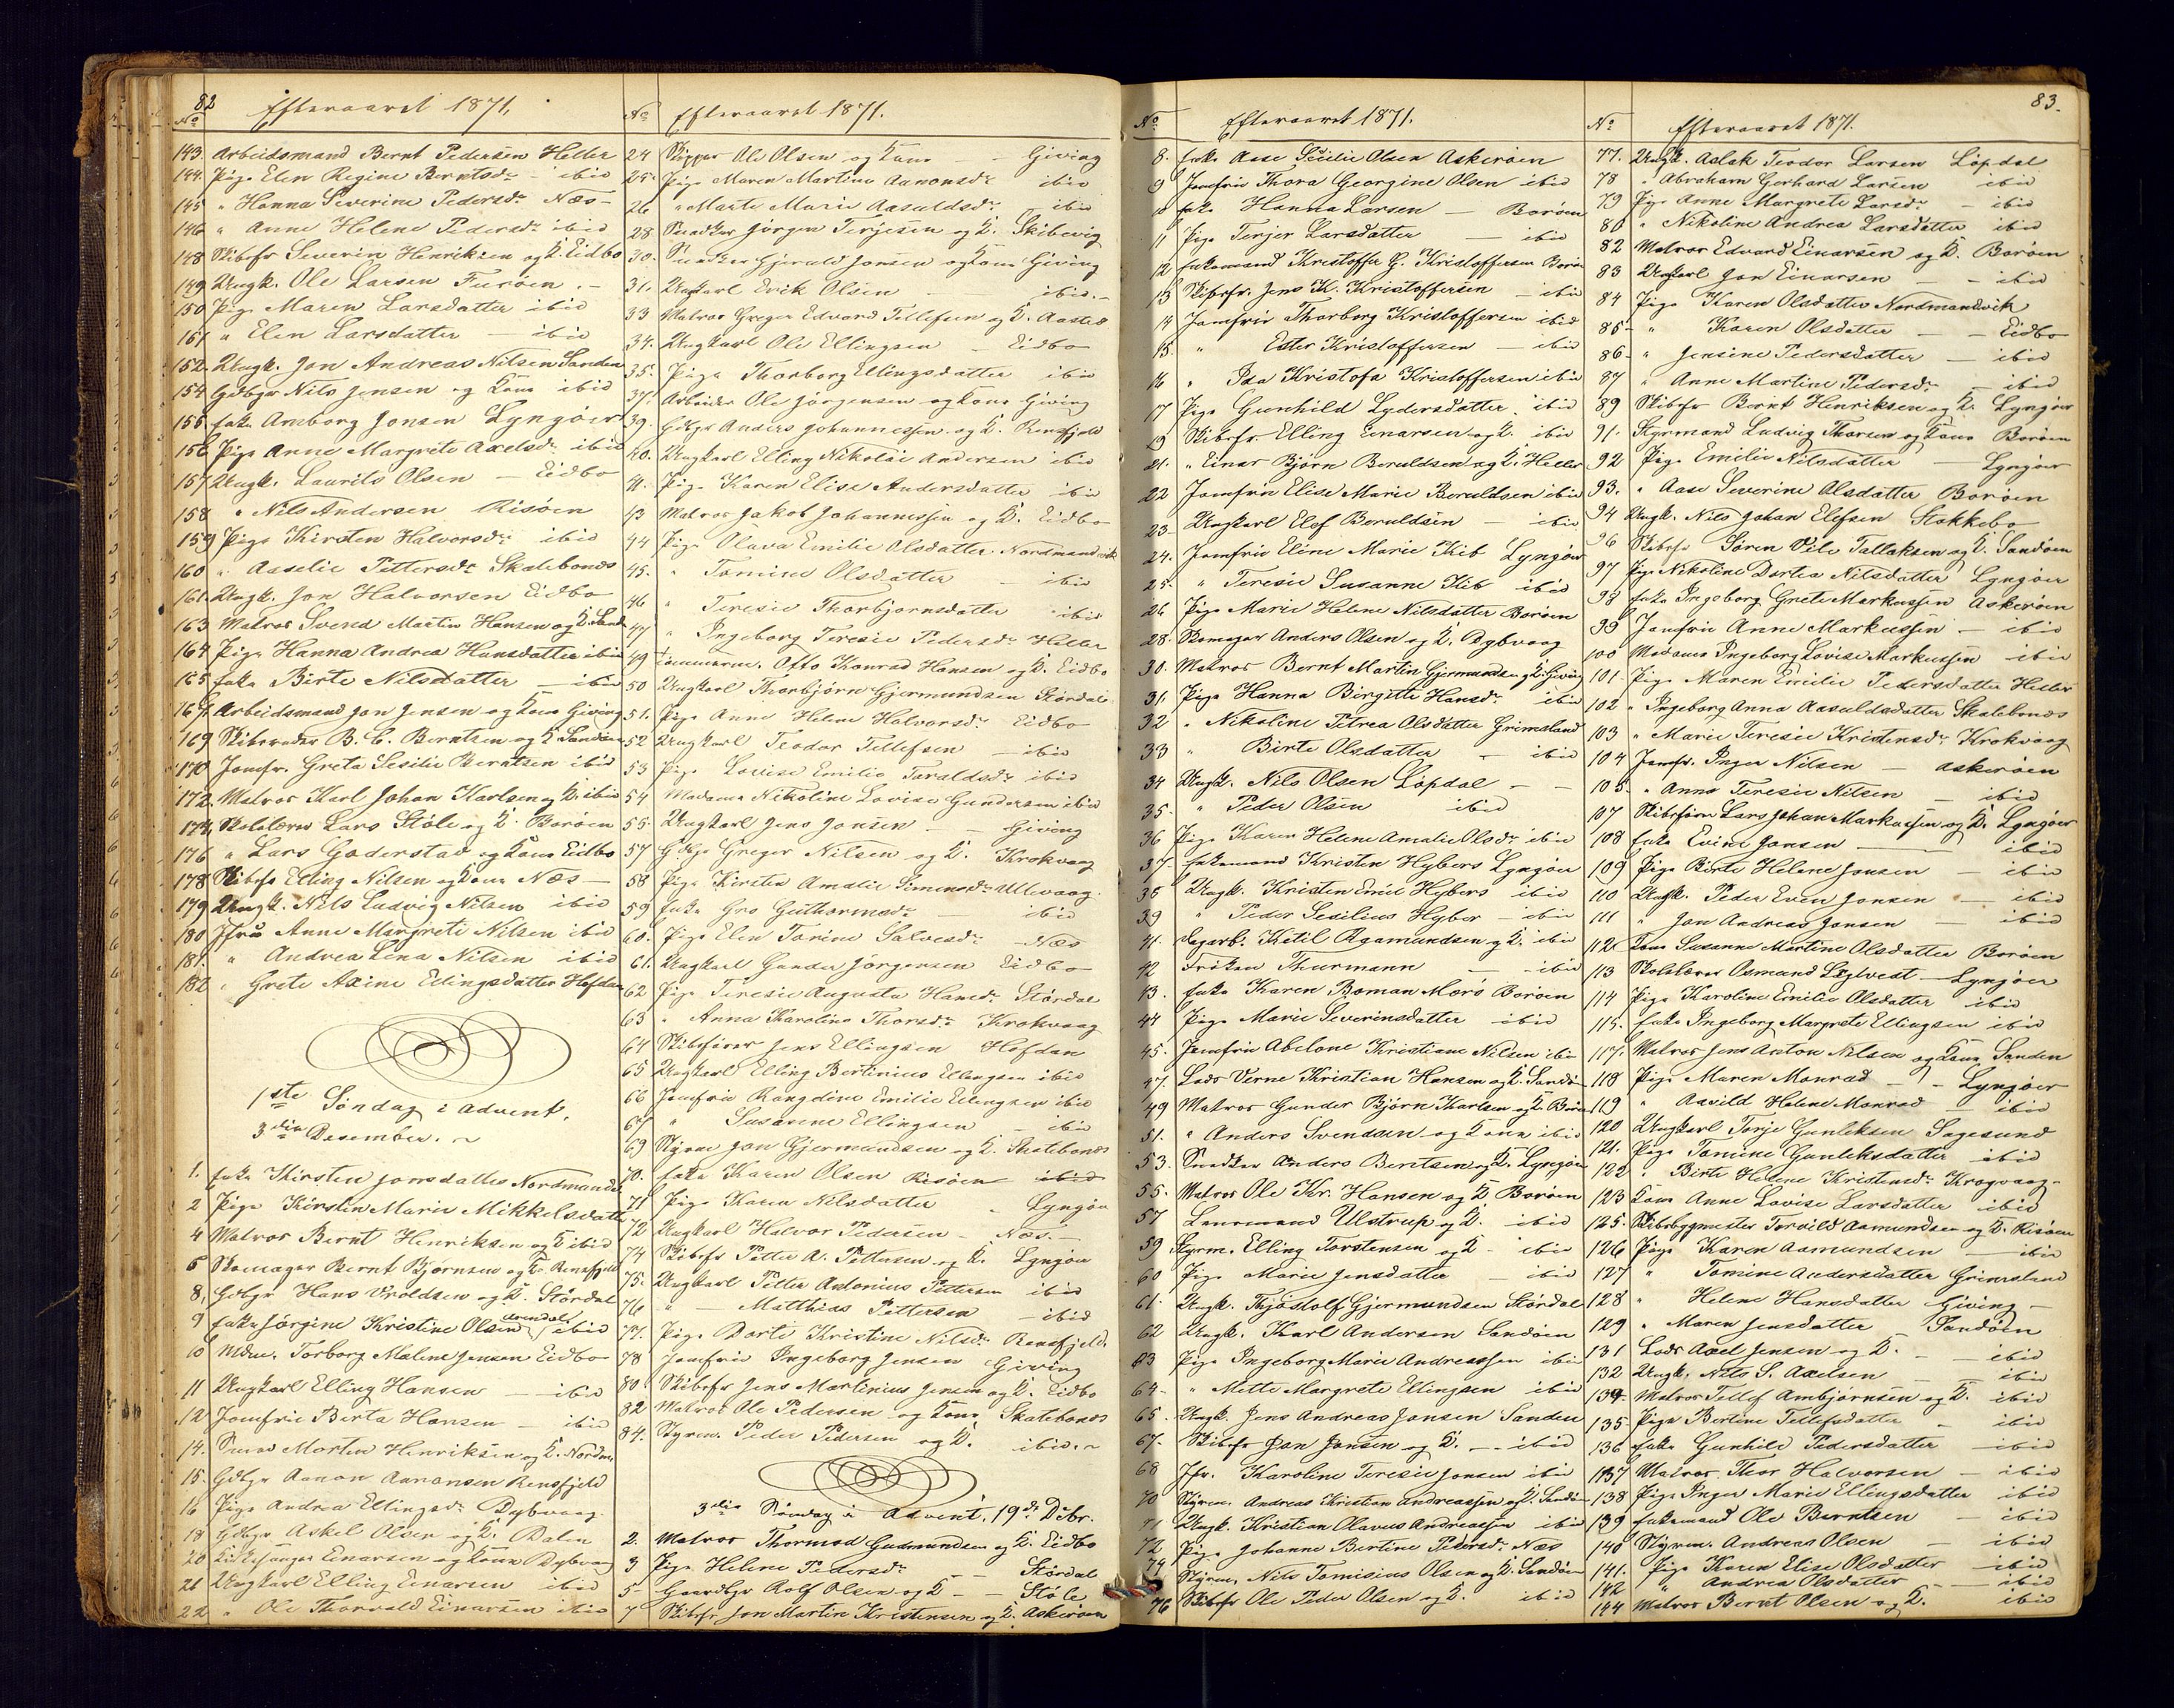 82
No
Efteraaret 1871.
143. Arbeidsmand Bernt Pedersen Heller
144. Pige Elen Regine Berntsdr - ibid
145 " Hanna Severine Pedersdr Næs -
146 " Anne Helene Pedersdr ibid
148 Skibsfr Severin Henriksen og K. Eidbo
149 Ungk. Ole Larsen Furöen . -
150 Pige Maren Larsdatter ibid
151 " Elen Larsdatter ibid
152. Ungk. Jon Andreas Nilsen Sanden
154 Gdbgr Nils Jensen og Kone ibid
155. Enke Amborg Jonsen Lyngöer
156 Pige Anne Margrete Axelsdr ibid
157 Ungk. Laurits Olsen - Eidbo
158 " Nils Andersen Risöen
159 Pige Kirsten Halvorsdr ibid
160 " Aaselie Pettersdr Skatebonæs
161. Ungk. Jon Halvorsen Eidbo
163 Matros Svend Martin Hansen og K. Sand
164 Pige Hanna Andrea Hansdatter ibid
165 Enke Birte Nilsdatter - ibid
167. Arbeidsmand Jon Jensen og Kone Giving
169 Skibsreder B. C. Berntsen og K. Sandöen
170 Jomfr. Grete Sesilie Berntsen ibid
172. Matros Karl Johan Karlsen og K. ibid
174. Skolelærer Lars Stöle og K. Boröen
176 " Lars Goderstad og Kone Eidbo
178 Skibsfr Elling Nilsen og Kone Næs -
179 Ungk. Nils Ludvig Nilsen ibid
180 Jfru Anne Margrete Nilsen ibid
181. " Andrea Lina Nilsen ibid
182 " Grete Axine Ellingsdatter Hofdan
1ste Söndag i Advent,
3die Desember.
1. Enke Kirsten Jonsdatter Nordmandv
2 Pige Kirsten Marie Mikkelsdatte
4 Matros Bernt Henriksen og K ibid
6 Skomager Bernt Björnsen og K. Rensfjeld
8. Gdbgr Hans Uroldsen og K. Stördal
9 Enke Jörgine Kristine Olsen Arendal ibid
10 Mdme. Torborg Malene Jensen Eidbo
11 Ungkarl Elling Hansen - ibid
12 Jomfru Berta Hansen - ibid
14. Morten Henriksen og K. Nordm
15. Gdbgr Aanon Aanonsen Rensfjeld
16 Pige Andrea Ellingsdr Dybvaag.
18 Gdbgr Askel Olsen og K. Dalen
20 Kirkesanger Einarsen og Kone Dybvaag
21 Ungkarl Elling Einarsen ibid
22 " Ole Thorvald Einarsen ibid
No
Efteraaret 1871.
24 Skipper Ole Olsen og Kone - - Giving
25. Pige Maren Martine Aanonsdr ibid
26 " Marte Marie Aasuldsdr - ibid
28 Snedker Jörgen Terjesen og K. Skibevig
30. Snedker Gjerald Jonsen og Kone Giving
31. Ungkarl Erik Olsen ibid. -
33 Matros Greger Edvard Tellefsen og K. Aasted
34. Ungkarl Ole Ellingsen - Eidbo
35. Pige Thorborg Ellingsdatter ibid
37. Arbeider Ole Jörgensen og Kone Giving
39. Gdbgr Anders Johannessen og K. Rensfjeld
40. Ungkarl Elling Nikolai Andersen ibid
41. Pige Karen Elise Andersdatter ibid
43 Matros Jakob Johannessen og K. Eidbo
44 Pige Olava Emilie Olsdatter Nordmandvik
45. " Tomine Olsdatter - ibid
46 " Teresie Thorbjornsdatter ibid
47 " Ingeborg Teresie Pedersdr Heller
49 Tömmerm. Otto Konrad Hansen og K. Eidbo
50 Ungkarl Thorbjörn Gjermundsen Stördal
51. Pige Anne Helene Halvorsdr Eidbo
52 Ungkarl Teodor Tellefsen - ibid
53 Pige Lovise Emilie Taraldsdr ibid
54 Madame Nikoline Lovise Gundersen ibid
55. Ungkarl Jens Jonsen - - Giving
57 Gdbgr Greger Nilsen og K. Krokvaag
58 Pige Kirsten Amalie Simonsdr Ulevaag.
59 Enke Gro Guthormsdr ibid
60. Pige Elen Torine Salvesdr Næs
61. Ungkarl Gunder Jörgensen Eidbo
62 Pige Teresie Augusta Hansdr Stördal
63 " Anna Karoline Thorsdr Krokvaag
64 Skibsförer Jens Ellingsen Hofdan
65 Ungkarl Elling Bertinius Ellingsen ibid
66 Jomfru Rangdine Emilie Ellingsen ibid
67 " Susanne Ellingsen - ibid
69 Styrm Jon Gjermundsen og K. Skatebonæs
70. Enke Karen Olsen Risöen ibid
71 Pige Karen Nilsdatter " Lyngöer
72 Ungkarl Halvor Pedersen - Næs. -
74 Skibsfr Petter A. Pettersen og K. Lyngöer
75. Ungkarl Petter Antonius Pettersen ibid
76 " - Matthias Pettersen - ibid
77. Pige Dorte Kristine Nilsdr Rensfjeld.
78 Jomfru Ingeborg Jensen Giving
80. Skibsfr Jens Martinius Jensen og K. Eidbo
82 Matros Ole Pedersen og Kone Skatebonæs
84. Styrm. Peder Pedersen og K. ibid. ~
3die Söndag i Advent, 19de Debr.
2. Matros Thormod Gudmundsen og K. Eidbo
3 Pige Helene Pedersdr - Stördal
5 Gaardbgr Rolf Olsen og K - - Stöle
7 Skibsfr Jon Martin Kristensen og K. Askeröen
No
Efteraaret 1871.
8. Enke Aase Sesilie Olsen Askeröen
9 Jomfru Thora Georgine Olsen ibid
10 Enke Hanna Larsen - Boröen
11 Pige Terjer Larsdatter - ibid
12 Enkemand Kristoffer G. Kristoffersen Borøen
13 Skibsfr. Jens K. Kristoffersen - ibid
14 Jomfru Thorborg Kristoffersen ibid
15. " Ester Kristoffersen - ibid
16 " Ida Kristofa Kristoffersen ibid
17 Pige Gunhild Lydersdatter ibid
19 Skibsfr. Elling Einarsen og K. ibid
21. " Einar Björn Beruldsen og K. Heller
22 Jomfru Elise Marie Beruldsen ibid
23. Ungkarl Elef Beruldsen - ibid
24. Jomfru Eline Marie Kib Lyngöer
25. " Teresie Susanne Kib ibid
26. Pige Marie Helene Nilsdatter Boröen
28. Skomager Anders Olsen og K. Dybvaag
30. Matros Bernt Martin Gjermundsen og K. Giving
31. Pige Hanna Birgitte Hansdr ibid
32 " Nikoline Petrea Olsdatter Grimesland
33 " Birte Olsdatter - ibid
34 Ungk. Nils Olsen Löpdal - -
35. " Peder Olsen ibid
36 Pige Karen Helene Amalie Olsdr ibid
37. Enkemand Kristen Hybers Lyngöer
38 Ungk. Kristen Emil Hybers ibid
39 " Peder Sesilius Hyber - ibid
41. Dagarb. Ketil Agamundsen og K. ibid
42 Fröken Thurmann - ibid
43. Enke Karen Boman Mörö Boröen
44 Pige Marie Severinsdatter ibid
45. Jomfru Abelone Kristiane Nilsen ibid
47. Lods Verne Kristian Hansen og K. Sandö
49 Matros Gunder Björn Karlsen og K. Borø
51. " Anders Svendsen og Kone ibid
53. Snedker Anders Berntsen og K. Lyngöer
55. Matros Ole Kr. Hansen og K Boröen
57 Lensmand Ulstrup og K. ibid
59 Styrm. Elling Torstensen og K - ibid
60 Pige Marie Jensdatter - ibid
61. Ungk. Thjöstolf Gjermundsen Stördal
62 Ungk. Karl Andersen Sandöen
63 Pige Ingeborg Marie Andreassen ibid
64. " Mette Margrete Ellingsen ibid
65. Ungk. Jens Andreas Jonsen Sanden
67. Skibsfr Jan Jonsen og K. - - ibid
68 Jfr. Karoline Teresie Jonsen ibid
70 Styrm. Andreas Kristian Andreassen og K. Sandöen
71 Ungk. Kristian Olavus Andreassen ibid
72 Pige Johanne Bertine Pedersdr Næs
74 Styrm. Nils Tomisius Olsen og K. Sandöen
76 Skibsfr Ole Peder Olsen og K. ibid
83.
No
Efteraaret 1871.
77. Ungk. Aslak Teodor Larsen Löpdal
78 " Abraham Gerhard Larsen ibid
79 Pige Anne Margrete Larsdr - ibid
80 " Nikoline Andrea Larsdatter ibid
82 Matros Edvard Einarsen og K. Boröen
83 Ungkarl Jon Einarsen - - ibid
84 Pige Karen Olsdatter Nordmandvik
85 " Karen Olsdatter - Eidbo
86 " Jensine Pedersdatter - ibid
87 " Anne Martine Pedersdr - ibid
89 Skibsfr Bernt Henriksen og K. Lyngöer
91. Styrmand Ludvig Thorsen og Kone Boröen
92 Pige Emilie Nilsdatter - Lyngöer
93. " Aase Severine Olsdatter Boröen
94 Ungk. Nils Johan Elefsen Stokkebo
96 Skibsfr Sören Vile Tallaksen og K. Sandöen
97 Pige Nikoline Dortea Nilsdatter Lyngöer
98 Enke Ingeborg Grete Markussen Askeröen
99 Jomfru Anne Markussen - ibid
100 Madame Ingeborg Lovise Markussen ibid
101. Pige Maren Emilie Pedersdatter Heller
102 " Ingeborg Anna Aasuldsdatter Skatebonæs
103 " Marie Teresie Kristensdr Krokvaag
104 Jomfr. Inger Nilsen - Askeröen
105. " Anne Teresie Nilsen - ibid
107 Skibsförer Lars Johan Markussen og K. Lyngöer
108 Enke Evine Jonsen - ibid
109 Pige Birte Helene Jonsen - ibid
110 Ungk. Peder Even Jonsen - ibid
111 " Jon Andreas Jonsen - ibid
112. Kone Susanne Martine Olsdatter Boröen
113 Skolelærer Osmund Ligtvest - Lyngöer
114 Pige Karoline Emilie Olsdatter ibid
115. Enke Ingeborg Margrete Ellingsen ibid
117. Matros Jens Anton Nilsen og Kone Sanden
118 Pige Maren Monrad - - Lyngöer
119 " Aavild Helene Monrad - ibid
120 Ungkarl Terje Gunleksen Sagesund
121. Pige Tomine Gunleksdatter ibid
122 " Birte Helene Kristensdr Krogvaag -
123 Kone Anne Lovise Larsdatter ibid
125. Skibsbygmester Torvild Aamundsen og K. Risöen
126 Pige Karen Aamundsen - ibid
127 " Tomine Andersdatter Grimesland
128 " Helene Hansdatter Giving -
129 " Maren Jensdatter Sandöen
131 Lods Axel Jensen og K. - - ibid
132 Ungk. Nils S. Axelsen - ibid
134 Matros Tellef Ambjörnsen og K. ibid
135. Pige Bertine Tellefsdatter - ibid
136 Enke Gunhild Pedersdatter - ibid
137 Matros Thor Halvorsen - ibid
138 Pige Inger Marie Ellingsdatter ibid
139 Enkemand Ole Berntsen - ibid
140 Styrm. Andreas Olsen - ibid
141. Pige Karen Elise Olsdatter - ibid
142 " Andrea Olsdatter - - ibid
144 Matros Bernt Olsen og K. ibid